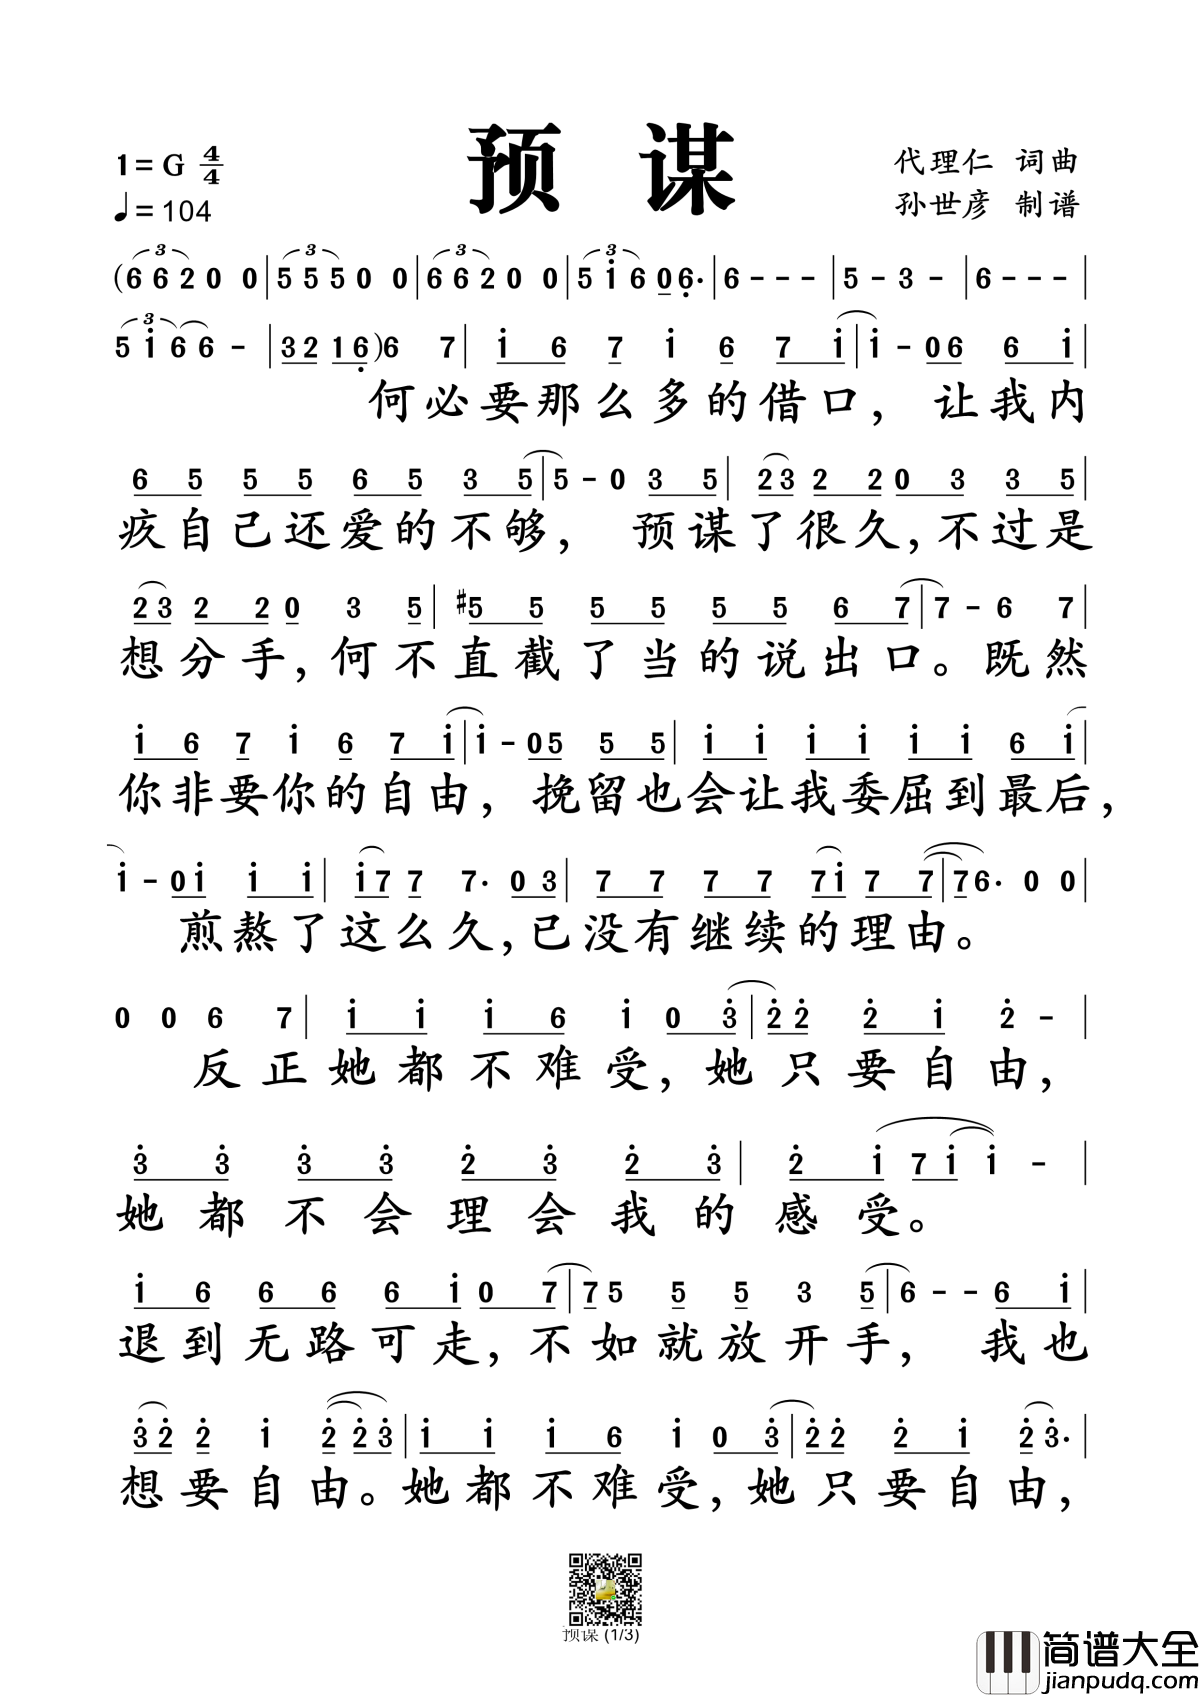 预谋
1=G 4/4
♩=104
代理仁 词曲
孙世彦 制谱
(6 6 2 0 0|5 5 5 0 0|6 6 2 0 0|5 i 6 0 6·|6 - - -|5 - 3 -|6 - - -|
5 i 6 6 -|3 2 1 6)6 7|i 6 7 i 6 7 i|i - 0 6 6 i|
何必要那么多的借口，让我内
6 5 5 5 6 5 3 5|5 - 0 3 5|2 3 2 2 0 3 3 5|
疚自己还爱的不够，预谋了很久，不过是
2 3 2 2 0 3 5|#5 5 5 5 5 5 6 7|7 - 6 7|
想分手，何不直截了当的说出口。既然
i 6 7 i 6 7 i|i - 0 5 5 5|i i i i i i 6 i|
你非要你的自由，挽留也会让我委屈到最后，
i - 0 i i i|i 7 7 7· 0 3|7 7 7 7 7 i 7 7|7 6· 0 0|
煎熬了这么久，已没有继续的理由。
0 0 6 7|i i i 6 i 0 3|2 2 2 i 2 -|
反正她都不难受，她只要自由，
3 3 3 3 2 3 2 3|2 i 7 i i -|
她都不会理会我的感受。
i 6 6 6 6 i 0 7|7 5 5 5 3 5|6 - - 6 i|
退到无路可走，不如就放开手，我也
3 2 2 i 2 2 3|i i i 6 i 0 3|2 2 2 i 2 3·|
想要自由。她都不难受，她只要自由，
预谋 (1/3)
简谱大全
jianpudq.com